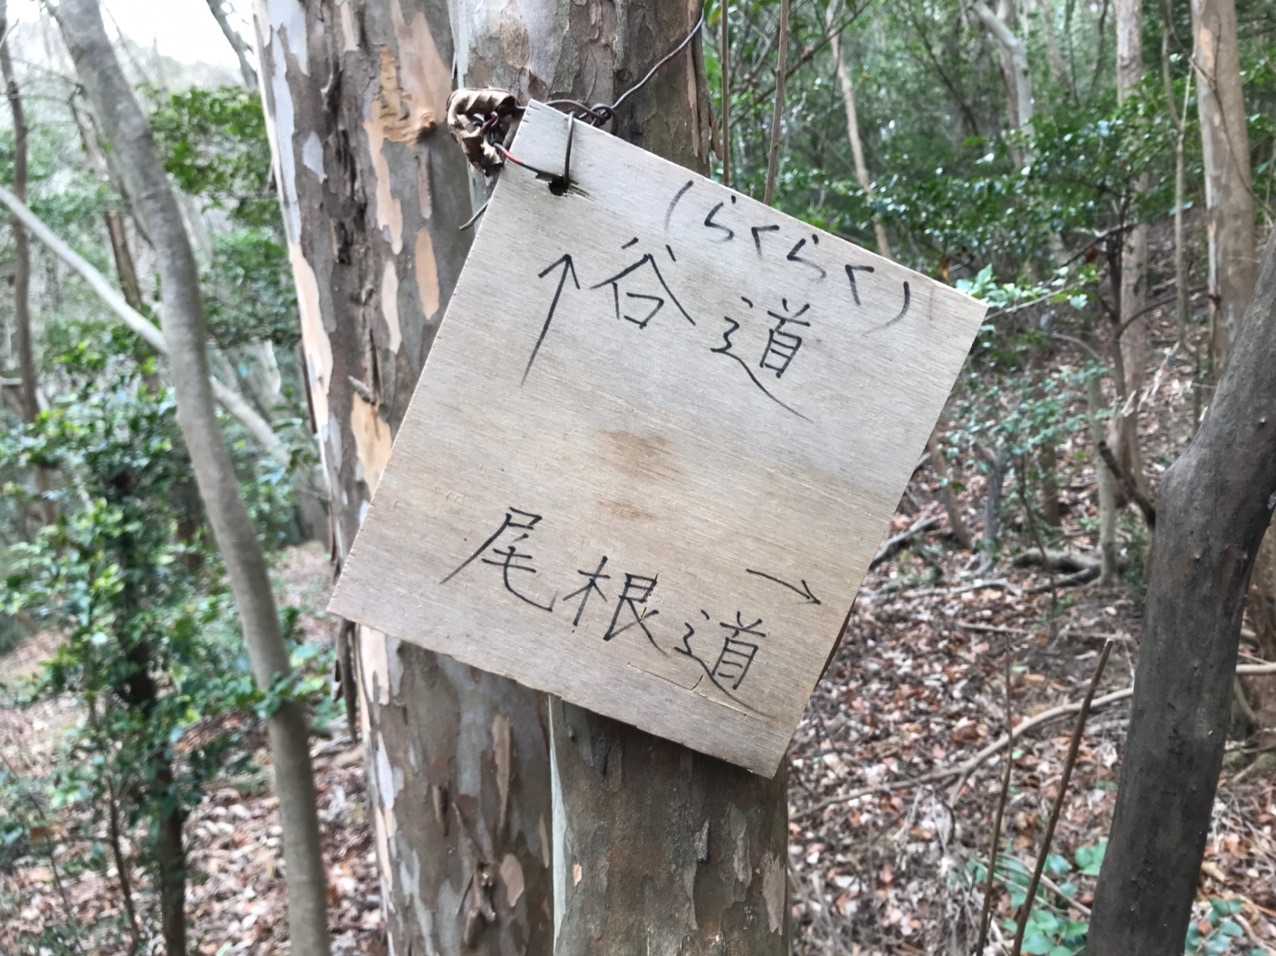 (らくらく)
↑谷道
尾根道→